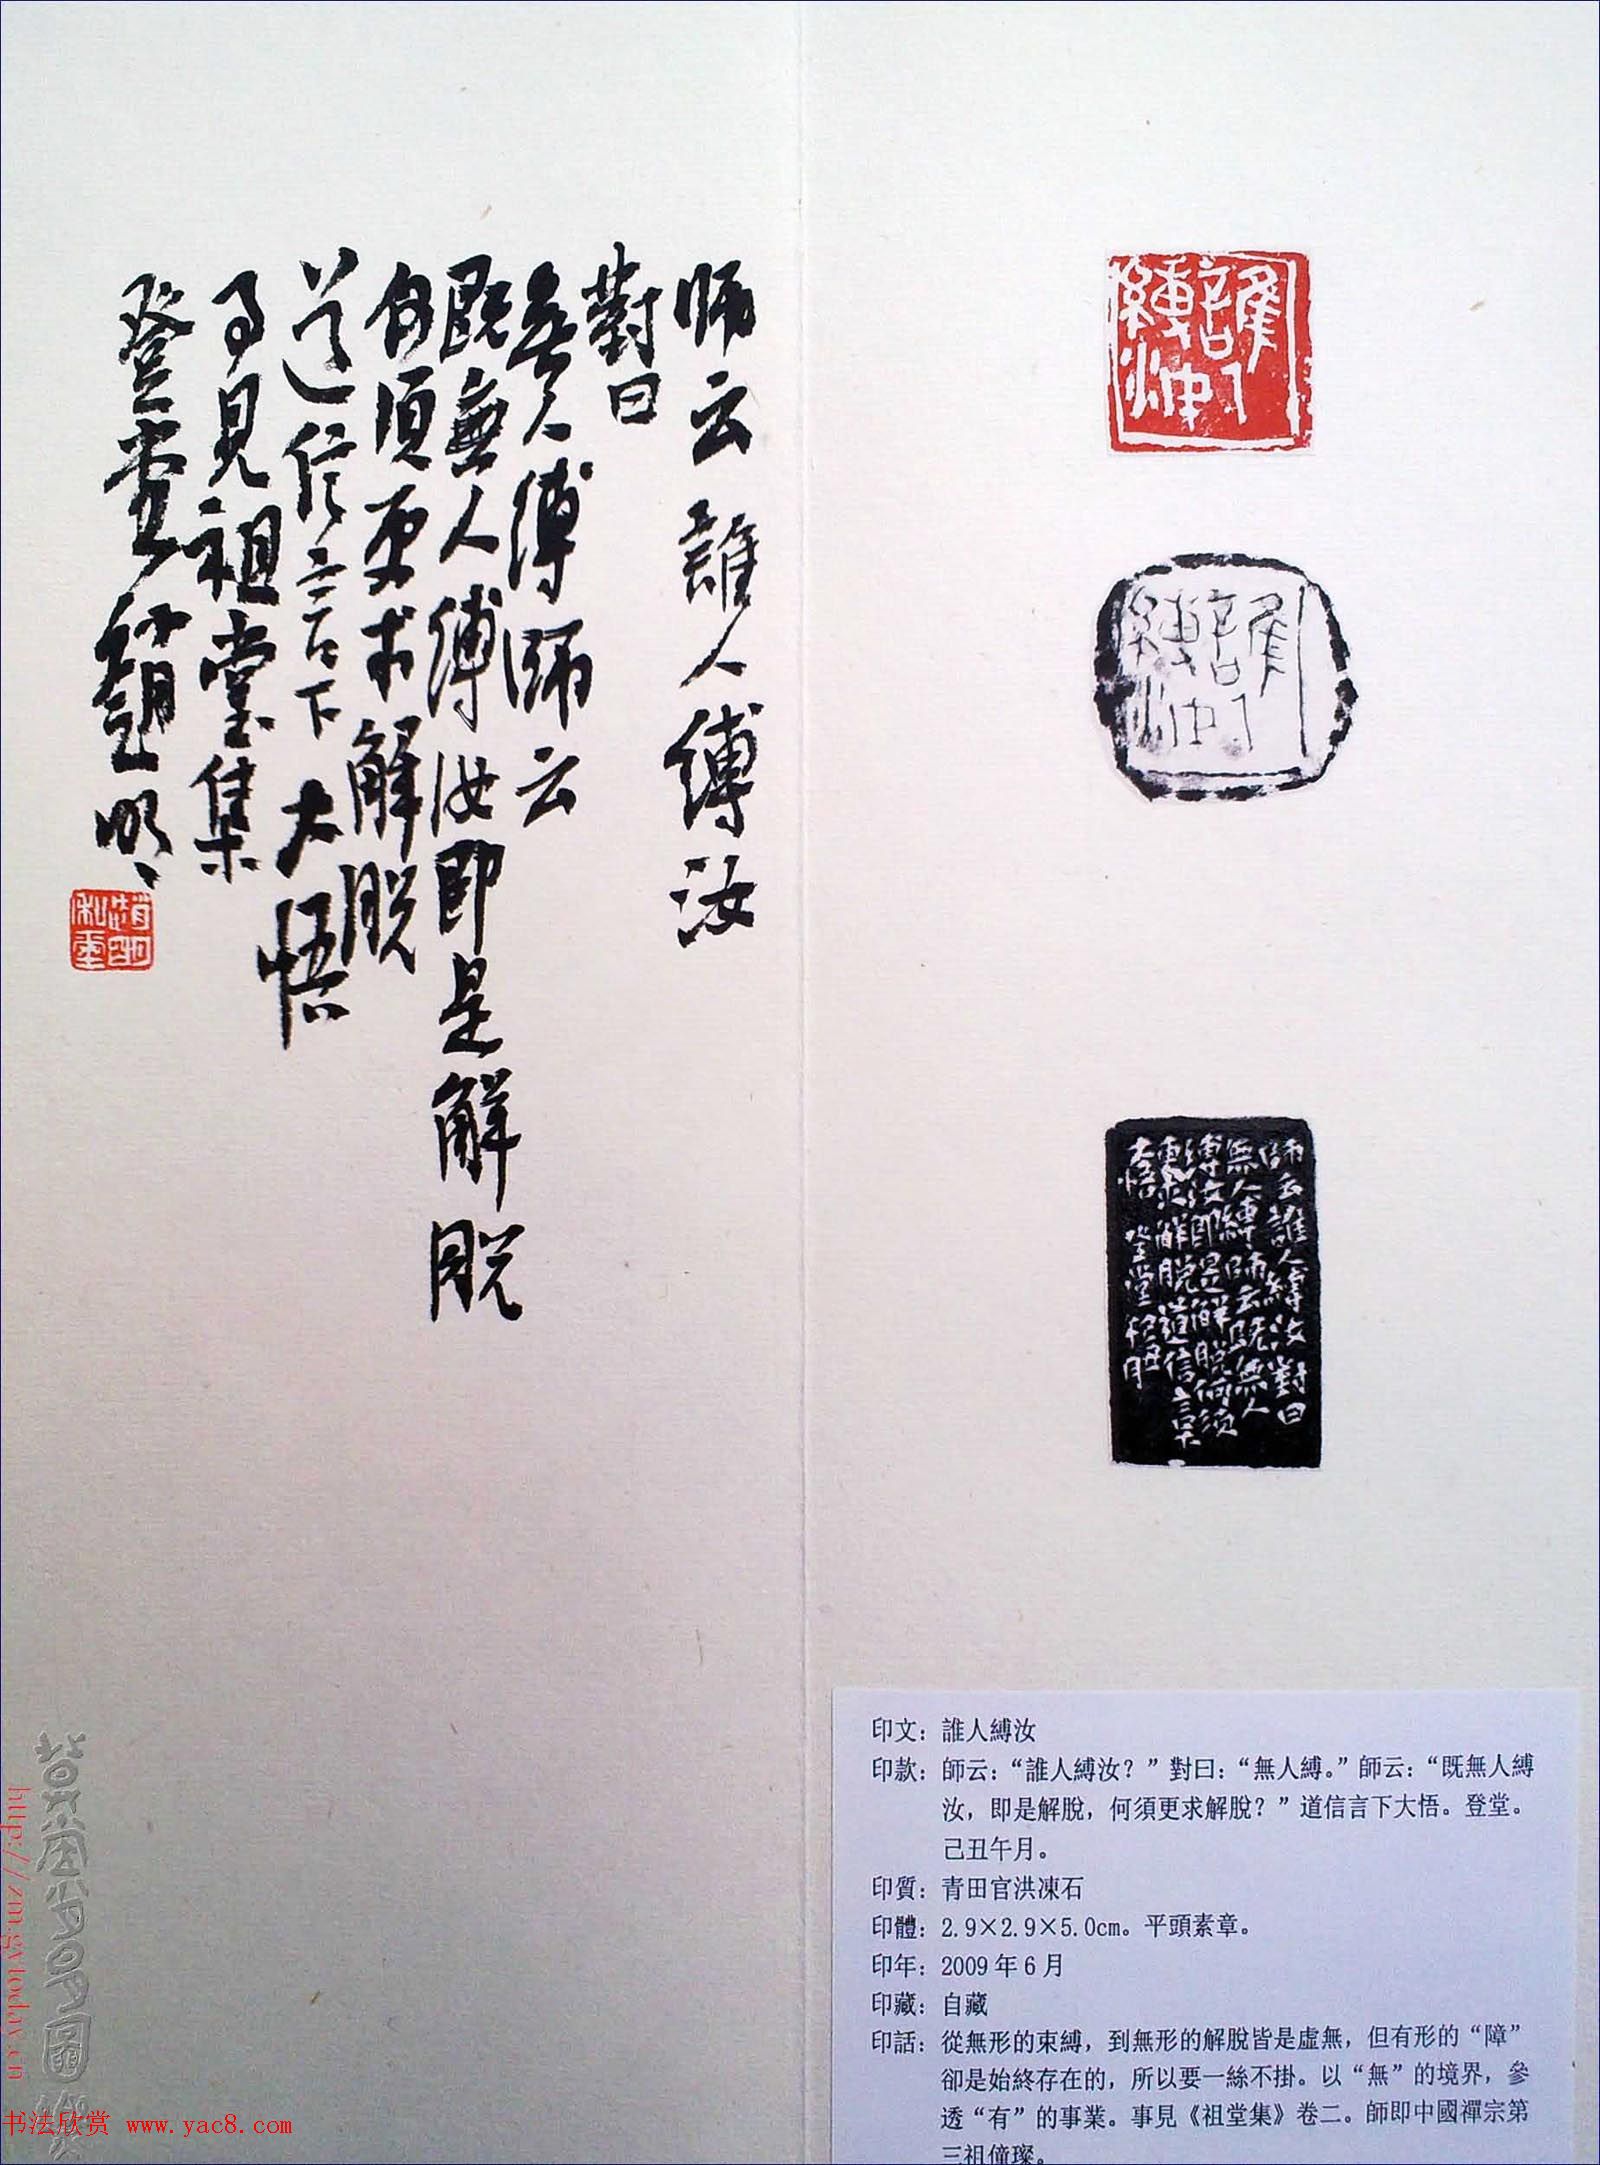 師云誰人縛汝
對曰
無人縛師云
既無人縛汝即是解脫
何須更求解脫
道信言下大悟
事見祖堂集
登堂 趙明
趙明
私印
誰人
縛汝
誰人
縛汝
師云誰人縛汝對曰
無人縛師云既無人
縛汝即是解脫何須
更求解脫道信言下
大悟 登堂 己丑午月
印文：誰人縛汝
印款：師云：“誰人縛汝？”對曰：“無人縛。”師云：“既無人縛
汝，即是解脫，何須更求解脫？”道信言下大悟。登堂。
己丑午月。
印質：青田官洪凍石
印體：2.9×2.9×5.0cm。平頭素章。
印年：2009 年 6 月
印藏：自藏
印話：從無形的束縛，到無形的解脫皆是虛無，但有形的“障”
卻是始終存在的，所以要一絲不掛。以“無”的境界，參
透“有”的事業。事見《祖堂集》卷二。師即中國禪宗第
三祖僮璨。
http://zm.gytoday.cn
书法欣赏 www.yac8.com